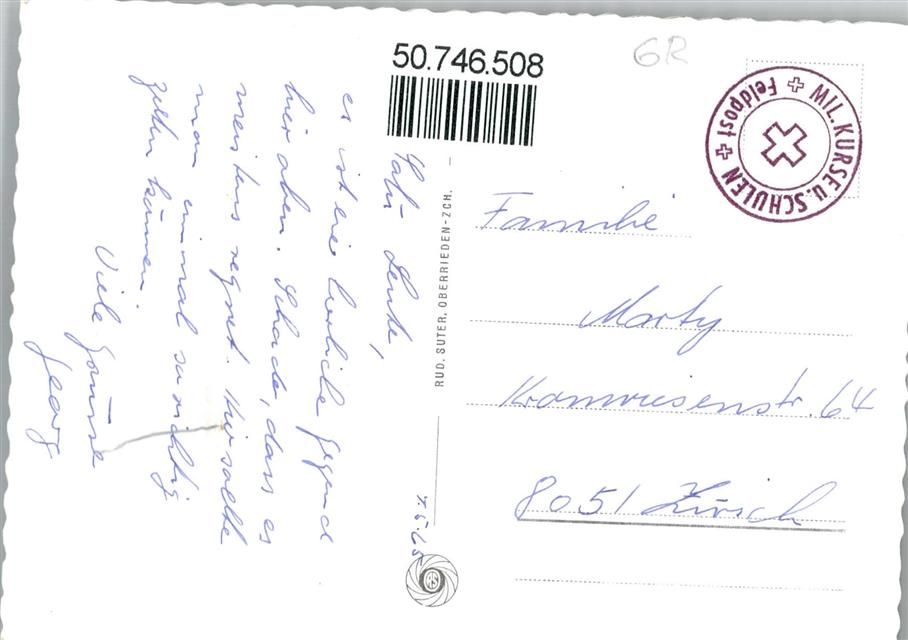 50.746.508
GR
MIL. KURSE u. SCHULEN
+ Feldpost +
Familie
Marty
Kronwiesenstr. 64
8051 Zürich
RUD. SUTER, OBERRIEDEN-ZCH.
RS
Salü Leute,
es ist eine herrliche Gegend
hier oben. Schade, dass es
meistens regnet. Hier sollte
man einmal so richtig
zelten können.
Viele Grüsse
Georg